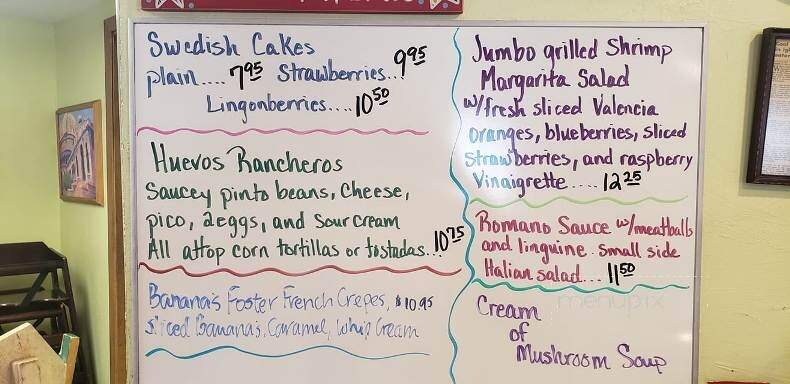 Swedish Cakes
plain.... 7.95 Strawberries... 9.95
Lingonberries.... 10.50
Huevos Rancheros
Saucey pinto beans, Cheese,
pico, 2eggs, and Sour cream
All attop corn tortillas or tostadas... 10.75
Banana's Foster French Crepes, $10.95
Sliced Banana's, Caramel, Whip Cream
Jumbo grilled Shrimp
Margarita Salad
w/fresh sliced Valencia
oranges, blueberries, sliced
Strawberries, and raspberry
Vinaigrette..... 12.25
Romano Sauce w/meatballs
and linguine. small side
Italian salad... 11.50
menupix
Cream
of
Mushroom Soup